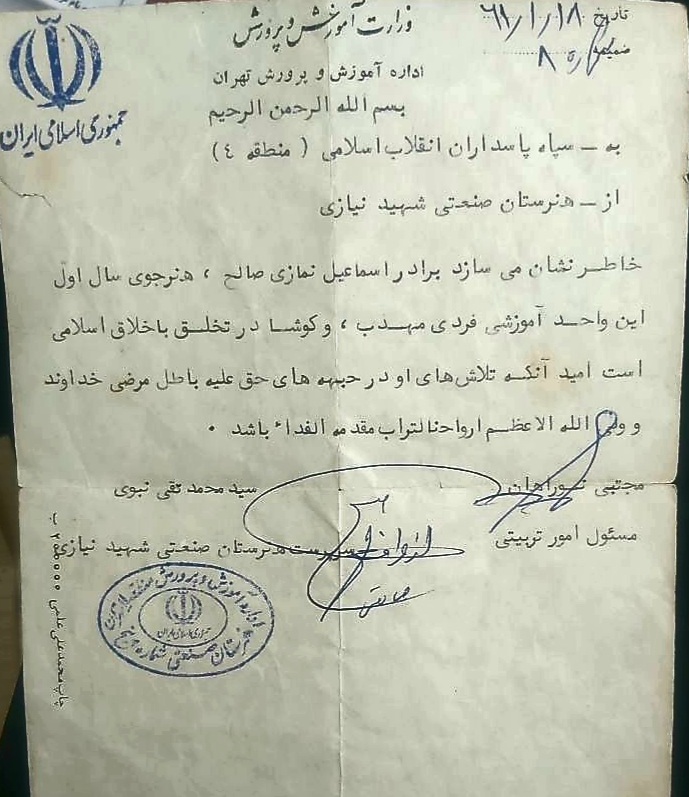 وزارت آموزش و پرورش
تاریخ ۶۱/۱/۱۸
ضمیمه
جمهوری اسلامی ایران
اداره آموزش و پرورش تهران
بسم الله الرحمن الرحیم
به ــ سپاه پاسداران انقلاب اسلامی ( منطقه ٤ )
از ــ هنرستان صنعتی شهید نیازی
خاطر نشان می سازد برادر اسماعیل نمازی صالح ، هنرجوی سال اول
این واحد آموزشی فردی مهدب ، و کوشا در تخلق باخلاق اسلامی
است امید آنکه تلاش‌های او در جبهه های حق علیه باطل مرضی خداوند
و ولی الله الاعظم ارواحنا لتراب مقدمه الفداء باشد .
مجتبی
سید محمد تقی نبوی
مسئول امور تربیتی
سرپرست هنرستان صنعتی شهید نیازی
اداره آموزش و پرورش منطقه
جمهوری اسلامی ایران
هنرستان صنعتی شماره
چاپ محمد علی علمی